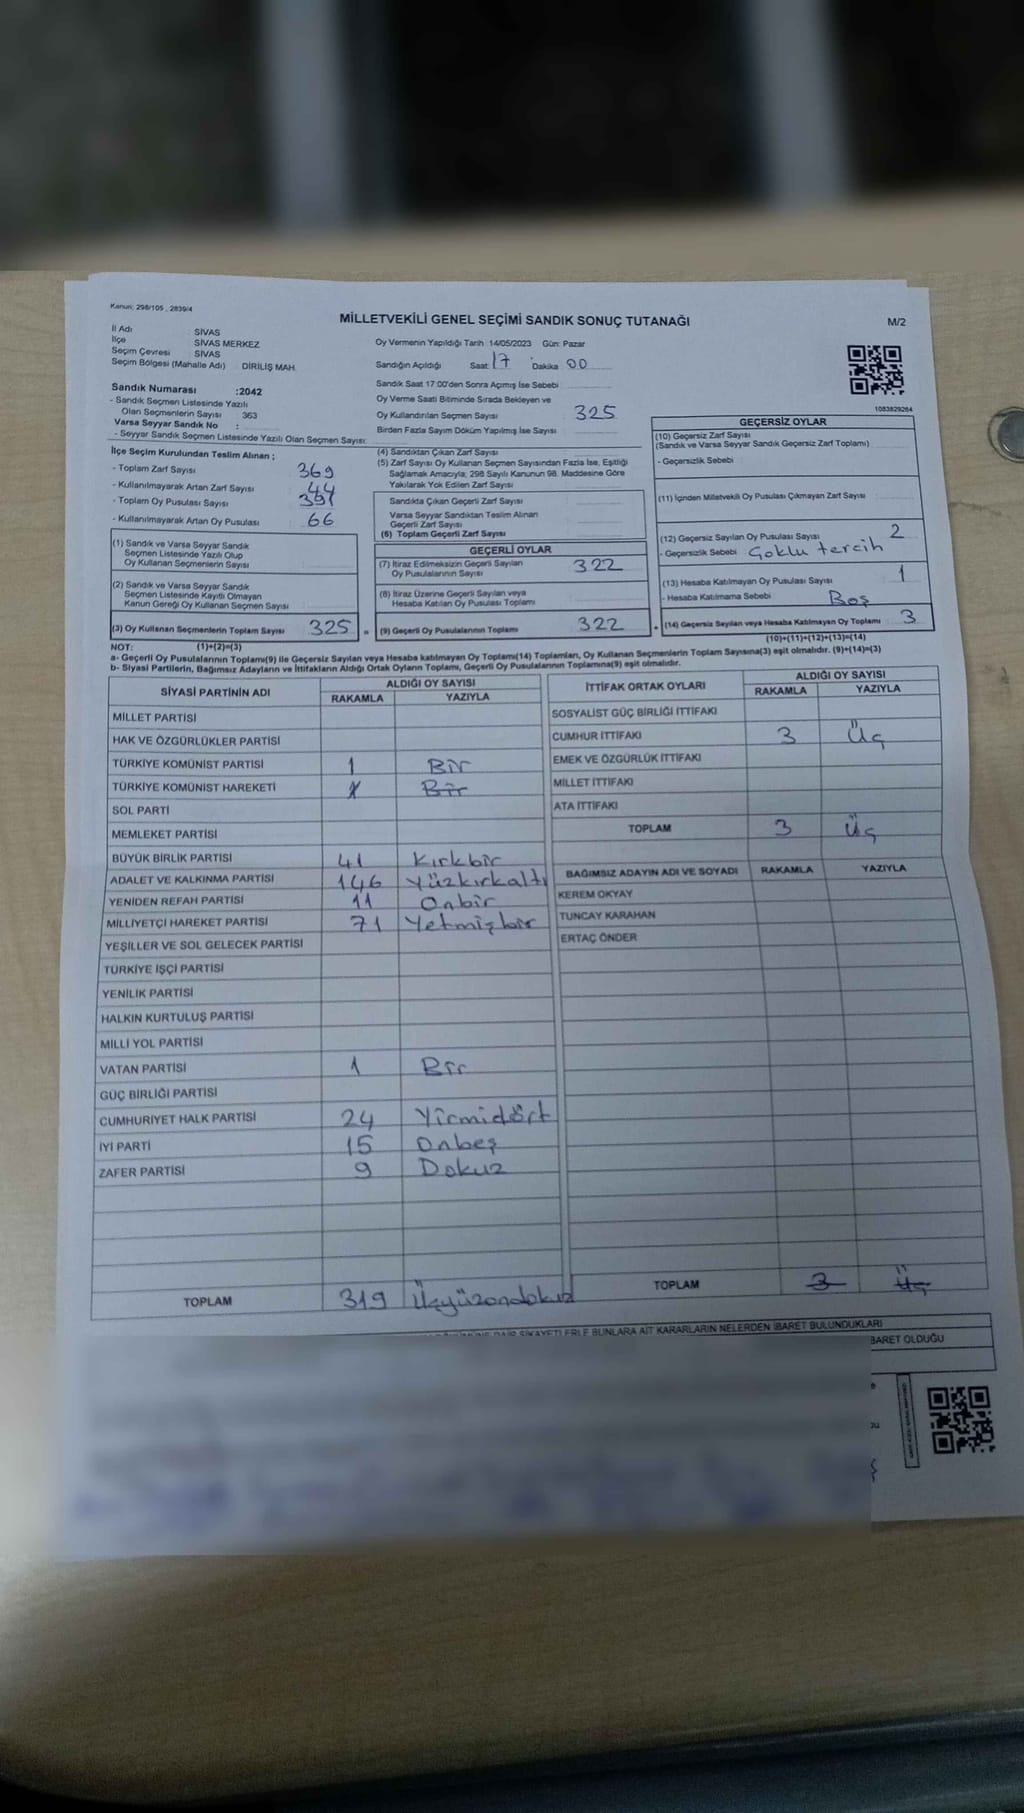 Kanun; 298/105 , 2839/4
MİLLETVEKİLİ GENEL SEÇİMİ SANDIK SONUÇ TUTANAĞI
M/2
İl Adı : SİVAS
İlçe : SİVAS MERKEZ
Seçim Çevresi : SİVAS
Seçim Bölgesi (Mahalle Adı) : DİRİLİŞ MAH.
Sandık Numarası :2042
- Sandık Seçmen Listesinde Yazılı
Olan Seçmenlerin Sayısı 363
Varsa Seyyar Sandık No :
- Seyyar Sandık Seçmen Listesinde Yazılı Olan Seçmen Sayısı:
Oy Vermenin Yapıldığı Tarih :14/05/2023 Gün: Pazar
Sandığın Açıldığı Saat: 17 Dakika 00
Sandık Saat 17.00'den Sonra Açımış İse Sebebi
Oy Verme Saati Bitiminde Sırada Bekleyen ve
Oy Kullandırılan Seçmen Sayısı 325
Birden Fazla Sayım Döküm Yapılmış İse Sayısı
1083829264
İlçe Seçim Kurulundan Teslim Alınan ;
- Toplam Zarf Sayısı 369
- Kullanılmayarak Artan Zarf Sayısı 44
- Toplam Oy Pusulası Sayısı 391
- Kullanılmayarak Artan Oy Pusulası 66
(1) Sandık ve Varsa Seyyar Sandık
Seçmen Listesinde Yazılı Olup
Oy Kullanan Seçmenlerin Sayısı
(2) Sandık ve Varsa Seyyar Sandık
Seçmen Listesinde Kayıtlı Olmayan
Kanun Gereği Oy Kullanan Seçmen Sayısı
(3) Oy Kullanan Seçmenlerin Toplam Sayısı 325 =
(4) Sandıktan Çıkan Zarf Sayısı
(5) Zarf Sayısı Oy Kullanan Seçmen Sayısından Fazla İse, Eşitliği
Sağlamak Amacıyla; 298 Sayılı Kanunun 98. Maddesine Göre
Yakılarak Yok Edilen Zarf Sayısı
Sandıkta Çıkan Geçerli Zarf Sayısı
Varsa Seyyar Sandıktan Teslim Alınan
Geçerli Zarf Sayısı
(6) Toplam Geçerli Zarf Sayısı
GEÇERLİ OYLAR
(7) İtiraz Edilmeksizin Geçerli Sayılan
Oy Pusulalarının Sayısı 322
(8) İtiraz Üzerine Geçerli Sayılan veya
Hesaba Katılan Oy Pusulası Toplamı
(9) Geçerli Oy Pusulalarının Toplamı 322 +
GEÇERSİZ OYLAR
(10) Geçersiz Zarf Sayısı
(Sandık ve Varsa Seyyar Sandık Geçersiz Zarf Toplamı)
- Geçersizlik Sebebi
(11) İçinden Milletvekili Oy Pusulası Çıkmayan Zarf Sayısı
(12) Geçersiz Sayılan Oy Pusulası Sayısı 2
- Geçersizlik Sebebi Çoklu tercih
(13) Hesaba Katılmayan Oy Pusulası Sayısı 1
- Hesaba Katılmama Sebebi Boş
(14) Geçersiz Sayılan veya Hesaba Katılmayan Oy Toplamı 3
NOT: (1)+(2)=(3) (10)+(11)+(12)+(13)=(14)
a- Geçerli Oy Pusulalarının Toplamı(9) ile Geçersiz Sayılan veya Hesaba katılmayan Oy Toplamı(14) Toplamları, Oy Kullanan Seçmenlerin Toplam Sayısına(3) eşit olmalıdır. (9)+(14)=(3)
b- Siyasi Partilerin, Bağımsız Adayların ve İttifakların Aldığı Ortak Oyların Toplamı, Geçerli Oy Pusulalarının Toplamına(9) eşit olmalıdır.
SİYASİ PARTİNİN ADI ALDIĞI OY SAYISI
RAKAMLA YAZIYLA
MİLLET PARTİSİ
HAK VE ÖZGÜRLÜKLER PARTİSİ
TÜRKİYE KOMÜNİST PARTİSİ 1 Bir
TÜRKİYE KOMÜNİST HAREKETİ 1 Bir
SOL PARTİ
MEMLEKET PARTİSİ
BÜYÜK BİRLİK PARTİSİ 41 Kırkbir
ADALET VE KALKINMA PARTİSİ 146 Yüzkırkaltı
YENİDEN REFAH PARTİSİ 11 Onbir
MİLLİYETÇİ HAREKET PARTİSİ 71 Yetmişbir
YEŞİLLER VE SOL GELECEK PARTİSİ
TÜRKİYE İŞÇİ PARTİSİ
YENİLİK PARTİSİ
HALKIN KURTULUŞ PARTİSİ
MİLLİ YOL PARTİSİ
VATAN PARTİSİ 1 Bir
GÜÇ BİRLİĞİ PARTİSİ
CUMHURİYET HALK PARTİSİ 24 Yirmidört
İYİ PARTİ 15 Onbeş
ZAFER PARTİSİ 9 Dokuz
TOPLAM 319 Üçyüzondokuz
İTTİFAK ORTAK OYLARI ALDIĞI OY SAYISI
RAKAMLA YAZIYLA
SOSYALİST GÜÇ BİRLİĞİ İTTİFAKI
CUMHUR İTTİFAKI 3 Üç
EMEK VE ÖZGÜRLÜK İTTİFAKI
MİLLET İTTİFAKI
ATA İTTİFAKI
TOPLAM 3 Üç
BAĞIMSIZ ADAYIN ADI VE SOYADI RAKAMLA YAZIYLA
KEREM OKYAY
TUNCAY KARAHAN
ERTAÇ ÖNDER
TOPLAM 3 Üç
ŞİKAYETLERLE BUNLARA AİT KARARLARIN NELERDEN İBARET BULUNDUKLARI
BARET OLDUĞU